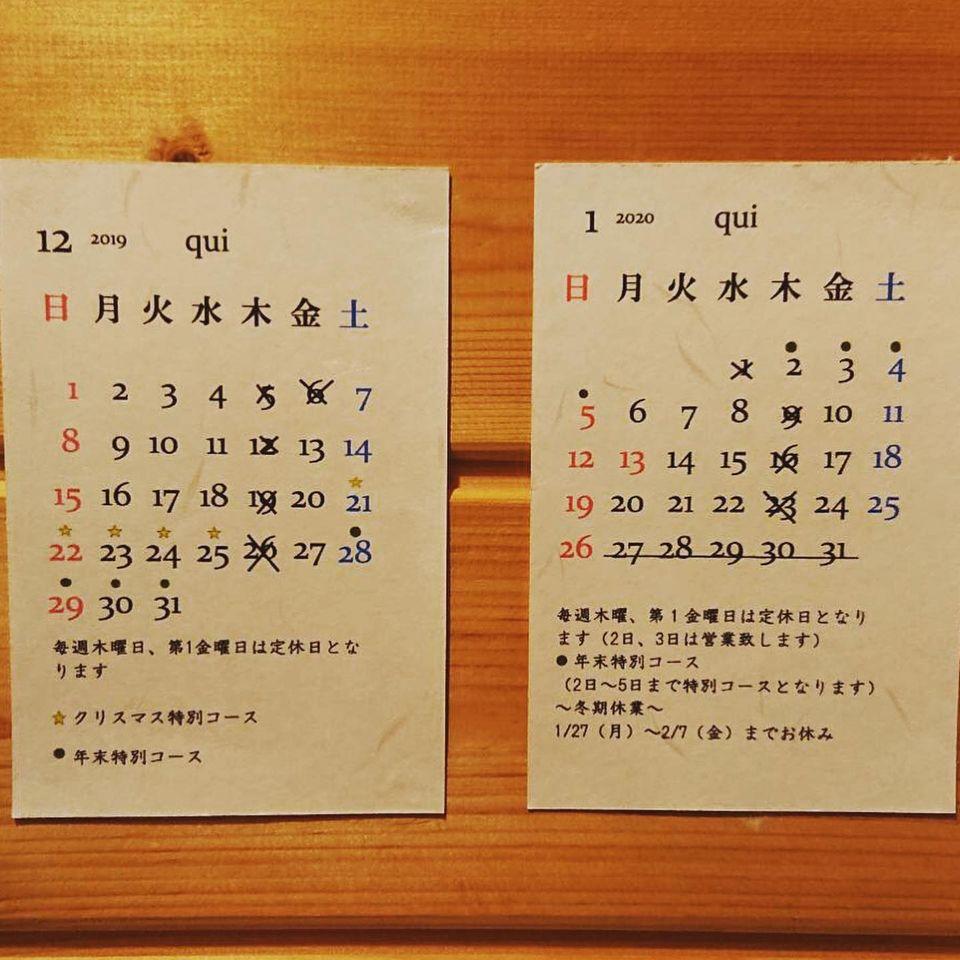 12 2019 qui
日 月 火 水 木 金 土
1 2 3 4 5 6 7
8 9 10 11 12 13 14
15 16 17 18 19 20 21
22 23 24 25 26 27 28
29 30 31
毎週木曜日、第1金曜日は定休日とな
ります
☆クリスマス特別コース
●年末特別コース
1 2020 qui
日 月 火 水 木 金 土
1 2 3 4
5 6 7 8 9 10 11
12 13 14 15 16 17 18
19 20 21 22 23 24 25
26 27 28 29 30 31
毎週木曜、第1金曜日は定休日となり
ます（2日、3日は営業致します）
●年末特別コース
（2日〜5日まで特別コースとなります）
〜冬期休業〜
1/27（月）〜2/7（金）までお休み